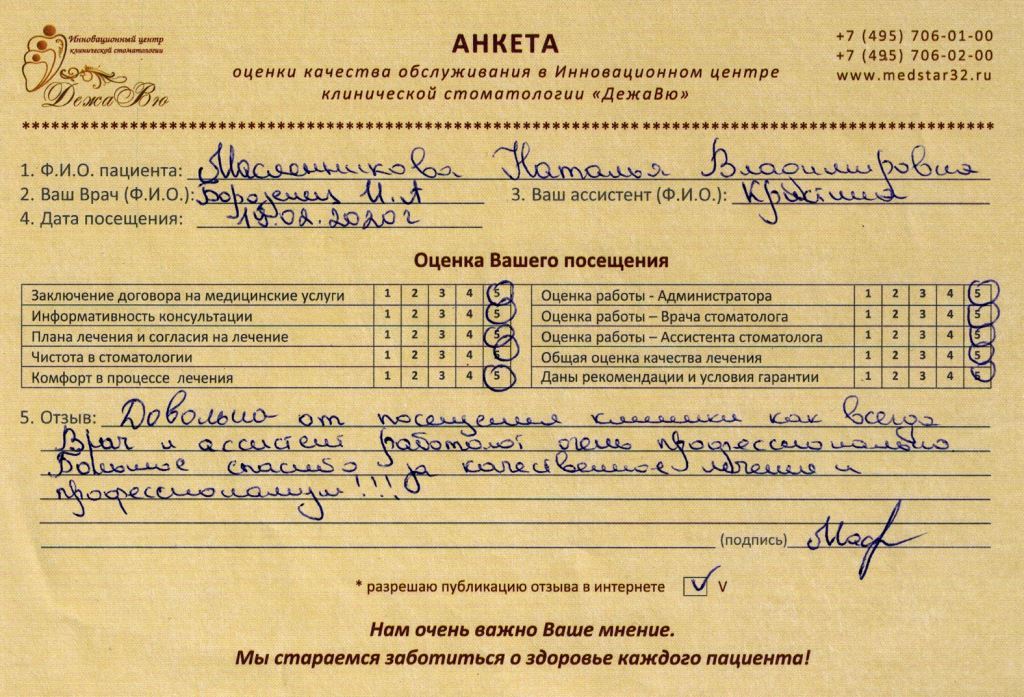 Инновационный центр
клинической стоматологии
ДежаВю
АНКЕТА
оценки качества обслуживания в Инновационном центре
клинической стоматологии «ДежаВю»
+7 (495) 706-01-00
+7 (495) 706-02-00
www.medstar32.ru
******************************************************************************
1. Ф.И.О. пациента: Масленникова Наталья Владимировна
2. Ваш Врач (Ф.И.О.): Бороденец И.А 3. Ваш ассистент (Ф.И.О.): Кристина
4. Дата посещения: 15.02.2020г
Оценка Вашего посещения
Заключение договора на медицинские услуги 1 2 3 4 5 Оценка работы - Администратора 1 2 3 4 5
Информативность консультации 1 2 3 4 5 Оценка работы – Врача стоматолога 1 2 3 4 5
Плана лечения и согласия на лечение 1 2 3 4 5 Оценка работы – Ассистента стоматолога 1 2 3 4 5
Чистота в стоматологии 1 2 3 4 5 Общая оценка качества лечения 1 2 3 4 5
Комфорт в процессе лечения 1 2 3 4 5 Даны рекомендации и условия гарантии 1 2 3 4 5
5. Отзыв: Довольна от посещения клиники как всегда
Врач и ассистент работают очень профессионально
Большое спасибо за качественное лечение и
профессионализм!!!
(подпись)
* разрешаю публикацию отзыва в интернете V
Нам очень важно Ваше мнение.
Мы стараемся заботиться о здоровье каждого пациента!